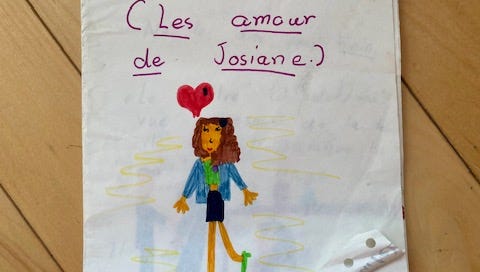 (Les amour
de Josiane.)